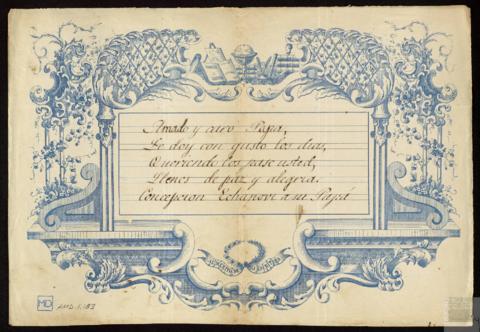 Amado y caro Papá,
Le doy con gusto los dias,
Queriendo los pase usted,
Llenos de paz y alegria.
Concepcion Echanove a su Papá
MD
AMD.1.183